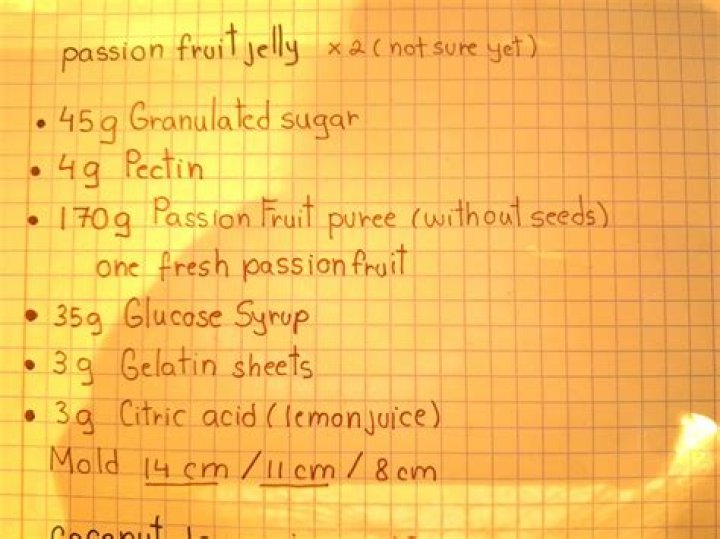 passion fruit jelly x2 (not sure yet)
• 45g Granulated sugar
• 4g Pectin
• 170g Passion Fruit puree (without seeds)
one fresh passion fruit
• 35g Glucose Syrup
• 3g Gelatin sheets
• 3g Citric acid (lemon juice)
Mold 14 cm / 11 cm / 8 cm
Coconut